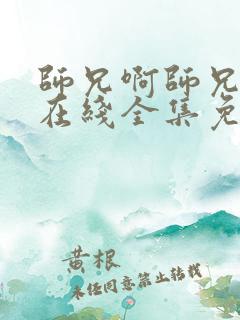 師兄啊師兄
在綫全集免
黄根
未经同意禁止转载